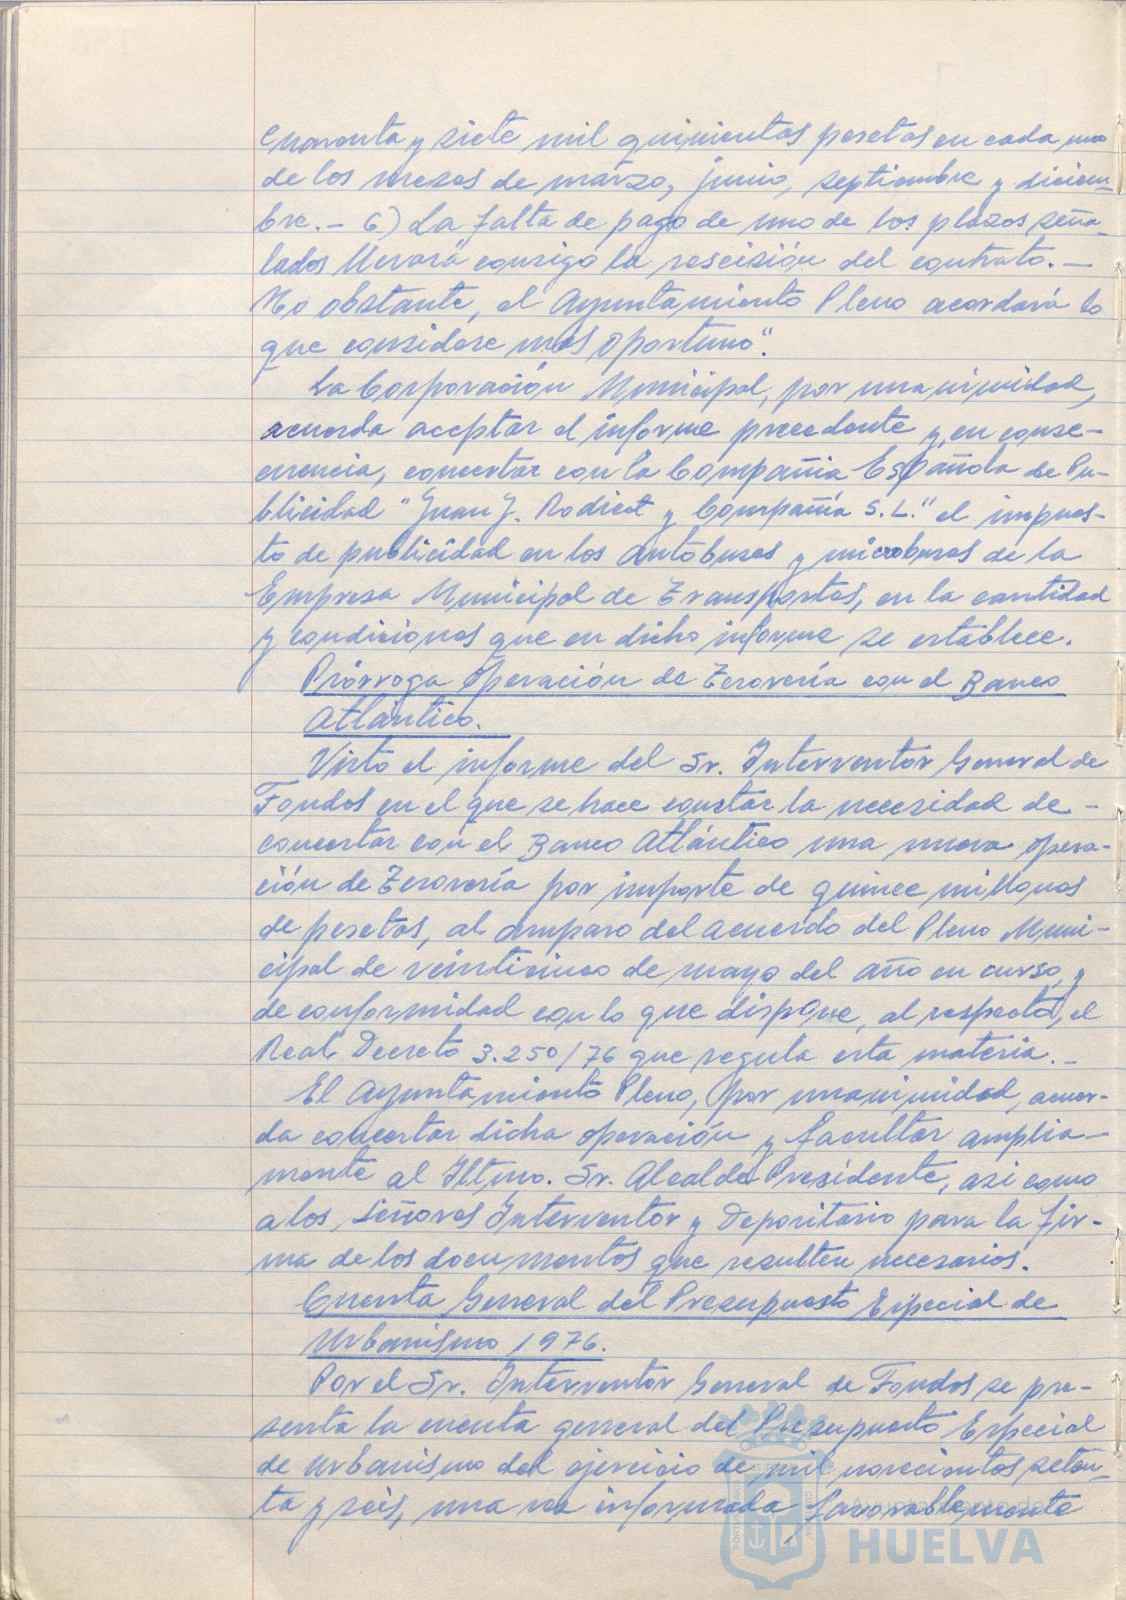 cuarenta y siete mil quinientas pesetas en cada uno
de los meses de marzo, junio, septiembre y diciem-
bre.- 6) La falta de pago de uno de los plazos seña-
lados llevará consigo la rescisión del contrato.-
No obstante, el Ayuntamiento Pleno acordará lo
que considere mas oportuno".
La Corporación Municipal, por unanimidad,
acuerda aceptar el informe precedente y, en conse-
cuencia, concertar con la Compañia Española de Pu-
blicidad "Juan J. Rodiet y Compañía S.L." el impues-
to de publicidad en los autobuses y microbuses de la
Empresa Municipal de Transportes, en la cantidad
y condiciones que en dicho informe se establece.
Prórroga Operación de Tesorería con el Banco
Atlántico.
Visto el informe del Sr. Interventor General de
Fondos en el que se hace constar la necesidad de-
concertar con el Banco Atlántico una nueva opera-
ción de Tesorería por importe de quince millones
de pesetas, al amparo del acuerdo del Pleno Muni-
cipal de veinticinco de mayo del año en curso, y
de conformidad con lo que dispone, al respecto, el
Real Decreto 3.250/76 que regula esta materia.-
El Ayuntamiento Pleno, por unanimidad, acuer-
da concertar dicha operación y facultar amplia-
mente al Iltmo. Sr. Alcalde Presidente, asi como
a los Señores Interventor y Depositario para la fir-
ma de los documentos que resulten necesarios.
Cuenta General del Presupuesto Especial de
Urbanismo 1976.
Por el Sr. Interventor General de Fondos se pre-
senta la cuenta general del Presupuesto Especial
de Urbanismo del ejercicio de mil novecientos seten-
ta y seis, una vez informada favorablemente
Ayuntamiento de
HUELVA